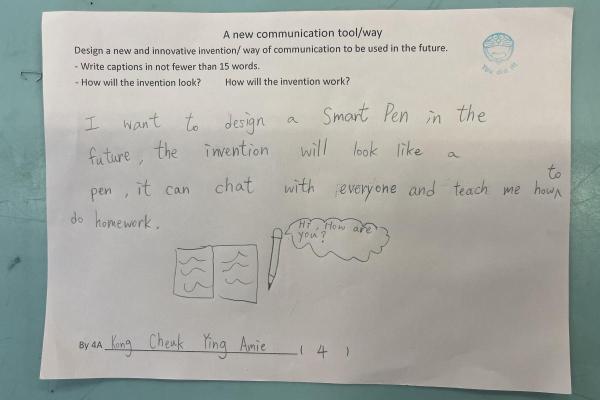 A new communication tool/way
Design a new and innovative invention/ way of communication to be used in the future.
- Write captions in not fewer than 15 words.
- How will the invention look? How will the invention work?
You did it!
I want to design a Smart Pen in the
future, the invention will look like a
pen, it can chat with everyone and teach me how to
do homework.
Hi, How are
you?
By 4A Kong Cheuk Ying Amie ( 4 )